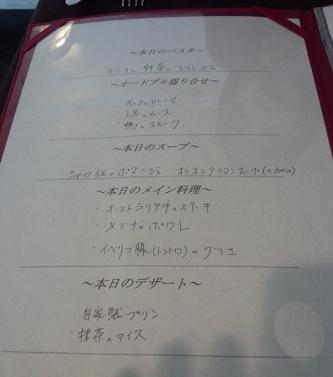 ～本日のパスタ～
キノコと野菜の トマトソース
～オードブル盛り合せ～
・のムース
・鴨のスモーク
～本日のスープ～
・ジャガイモのポタージュ オニオングラタンスープ(+300)
～本日のメイン料理～
・オーストラリア牛のステーキ
・メジナのポワレ
・イベリコ豚(トントロ)のグリエ
～本日のデザート～
・自家製プリン
・抹茶のアイス